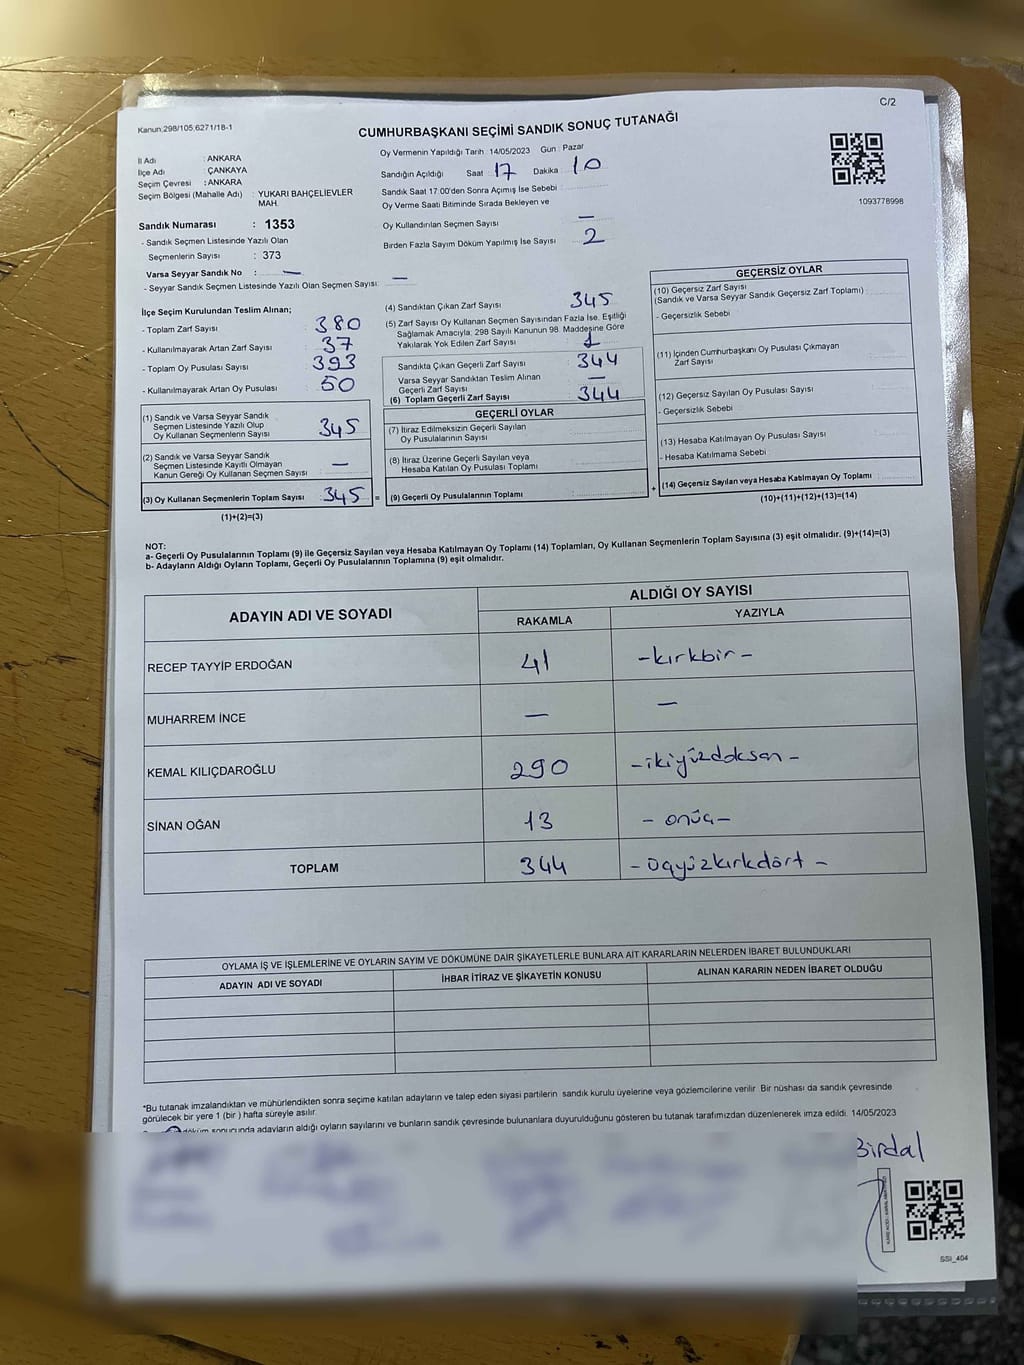 C/2
Kanun:298/105;6271/18-1
CUMHURBAŞKANI SEÇİMİ SANDIK SONUÇ TUTANAĞI
1093778998
İl Adı : ANKARA
İlçe Adı : ÇANKAYA
Seçim Çevresi : ANKARA
Seçim Bölgesi (Mahalle Adı) : YUKARI BAHÇELİEVLER
MAH.
Sandık Numarası : 1353
- Sandık Seçmen Listesinde Yazılı Olan
Seçmenlerin Sayısı : 373
Varsa Seyyar Sandık No : —
- Seyyar Sandık Seçmen Listesinde Yazılı Olan Seçmen Sayısı: —
Oy Vermenin Yapıldığı Tarih :14/05/2023 Gün : Pazar
Sandığın Açıldığı Saat : 17 Dakika : 10
Sandık Saat 17:00'den Sonra Açımış İse Sebebi :
Oy Verme Saati Bitiminde Sırada Bekleyen ve
Oy Kullandırılan Seçmen Sayısı : —
Birden Fazla Sayım Döküm Yapılmış İse Sayısı : 2
İlçe Seçim Kurulundan Teslim Alınan;
- Toplam Zarf Sayısı : 380
- Kullanılmayarak Artan Zarf Sayısı : 37
- Toplam Oy Pusulası Sayısı : 393
- Kullanılmayarak Artan Oy Pusulası : 50
(1) Sandık ve Varsa Seyyar Sandık
Seçmen Listesinde Yazılı Olup
Oy Kullanan Seçmenlerin Sayısı : 345
(2) Sandık ve Varsa Seyyar Sandık
Seçmen Listesinde Kayıtlı Olmayan
Kanun Gereği Oy Kullanan Seçmen Sayısı : —
(3) Oy Kullanan Seçmenlerin Toplam Sayısı : 345 =
(1)+(2)=(3)
(4) Sandıktan Çıkan Zarf Sayısı : 345
(5) Zarf Sayısı Oy Kullanan Seçmen Sayısından Fazla İse, Eşitliği
Sağlamak Amacıyla; 298 Sayılı Kanunun 98. Maddesine Göre
Yakılarak Yok Edilen Zarf Sayısı : 1
Sandıkta Çıkan Geçerli Zarf Sayısı : 344
Varsa Seyyar Sandıktan Teslim Alınan
Geçerli Zarf Sayısı : —
(6) Toplam Geçerli Zarf Sayısı : 344
GEÇERLİ OYLAR
(7) İtiraz Edilmeksizin Geçerli Sayılan
Oy Pusulalarının Sayısı :
(8) İtiraz Üzerine Geçerli Sayılan veya
Hesaba Katılan Oy Pusulası Toplamı :
(9) Geçerli Oy Pusulalarının Toplamı : +
GEÇERSİZ OYLAR
(10) Geçersiz Zarf Sayısı
(Sandık ve Varsa Seyyar Sandık Geçersiz Zarf Toplamı) :
- Geçersizlik Sebebi
(11) İçinden Cumhurbaşkanı Oy Pusulası Çıkmayan
Zarf Sayısı :
(12) Geçersiz Sayılan Oy Pusulası Sayısı :
- Geçersizlik Sebebi
(13) Hesaba Katılmayan Oy Pusulası Sayısı :
- Hesaba Katılmama Sebebi
(14) Geçersiz Sayılan veya Hesaba Katılmayan Oy Toplamı :
(10)+(11)+(12)+(13)=(14)
NOT:
a- Geçerli Oy Pusulalarının Toplamı (9) ile Geçersiz Sayılan veya Hesaba Katılmayan Oy Toplamı (14) Toplamları, Oy Kullanan Seçmenlerin Toplam Sayısına (3) eşit olmalıdır. (9)+(14)=(3)
b- Adayların Aldığı Oyların Toplamı, Geçerli Oy Pusulalarının Toplamına (9) eşit olmalıdır.
ADAYIN ADI VE SOYADI
ALDIĞI OY SAYISI
RAKAMLA YAZIYLA
RECEP TAYYİP ERDOĞAN 41 -kırkbir-
MUHARREM İNCE — —
KEMAL KILIÇDAROĞLU 290 -ikiyüzdoksan-
SİNAN OĞAN 13 -onüç-
TOPLAM 344 -üçyüzkırkdört-
OYLAMA İŞ VE İŞLEMLERİNE VE OYLARIN SAYIM VE DÖKÜMÜNE DAİR ŞİKAYETLERLE BUNLARA AİT KARARLARIN NELERDEN İBARET BULUNDUKLARI
ADAYIN ADI VE SOYADI İHBAR İTİRAZ VE ŞİKAYETİN KONUSU ALINAN KARARIN NEDEN İBARET OLDUĞU
*Bu tutanak imzalandıktan ve mühürlendikten sonra seçime katılan adayların ve talep eden siyasi partilerin sandık kurulu üyelerine veya gözlemcilerine verilir. Bir nüshası da sandık çevresinde
görülecek bir yere 1 (bir ) hafta süreyle asılır.
döküm sonucunda adayların aldığı oyların sayılarını ve bunların sandık çevresinde bulunanlara duyurulduğunu gösteren bu tutanak tarafımızdan düzenlenerek imza edildi. 14/05/2023
Birdal
SSI_404